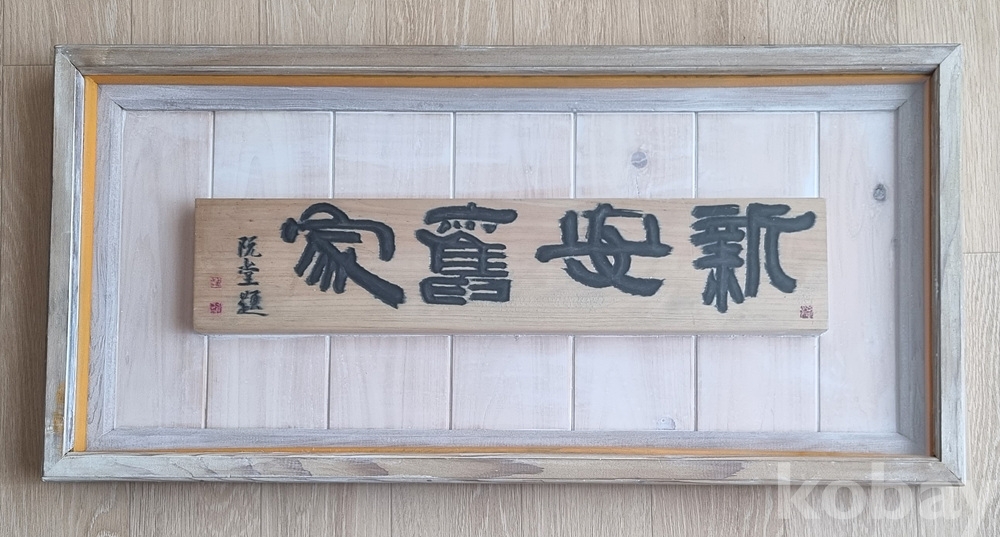 新安舊家
阮堂題
kobay